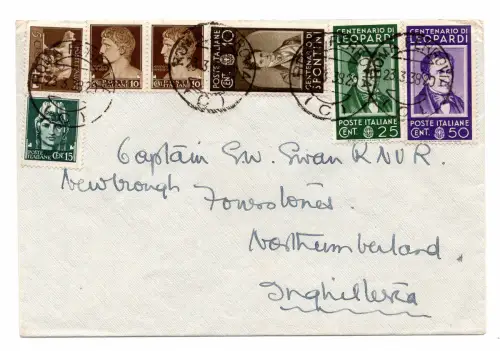 CENTENARIO DI LEOPARDI
CENTENARIO DI LEOPARDI
POSTE ITALIANE
CENT. 10
CENTENARIO DI
SPONTINI
10
10
POSTE ITALIANE
CENT. 25
POSTE ITALIANE
CENT. 50
POSTE
ITALIANE
CEN. 15
Captain Sw. Swan R N V R.
Newbrough Fourstones.
Northumberland.
Inghilterra